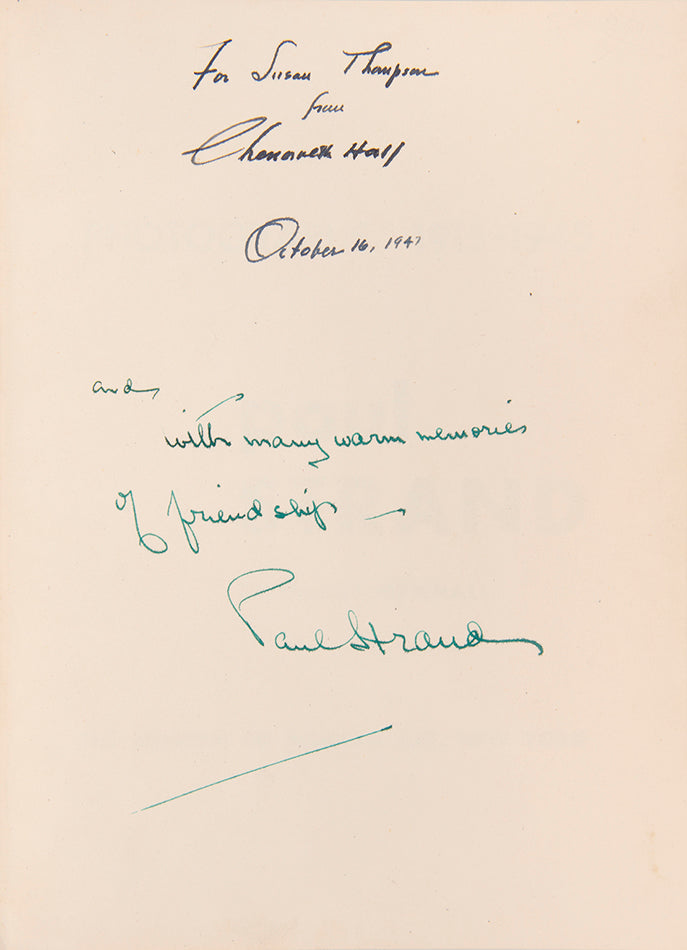 For Susan Thompson
from
Chenoweth Hall
October 16, 1947
and
with many warm memories
of friendship —
Paul Strand